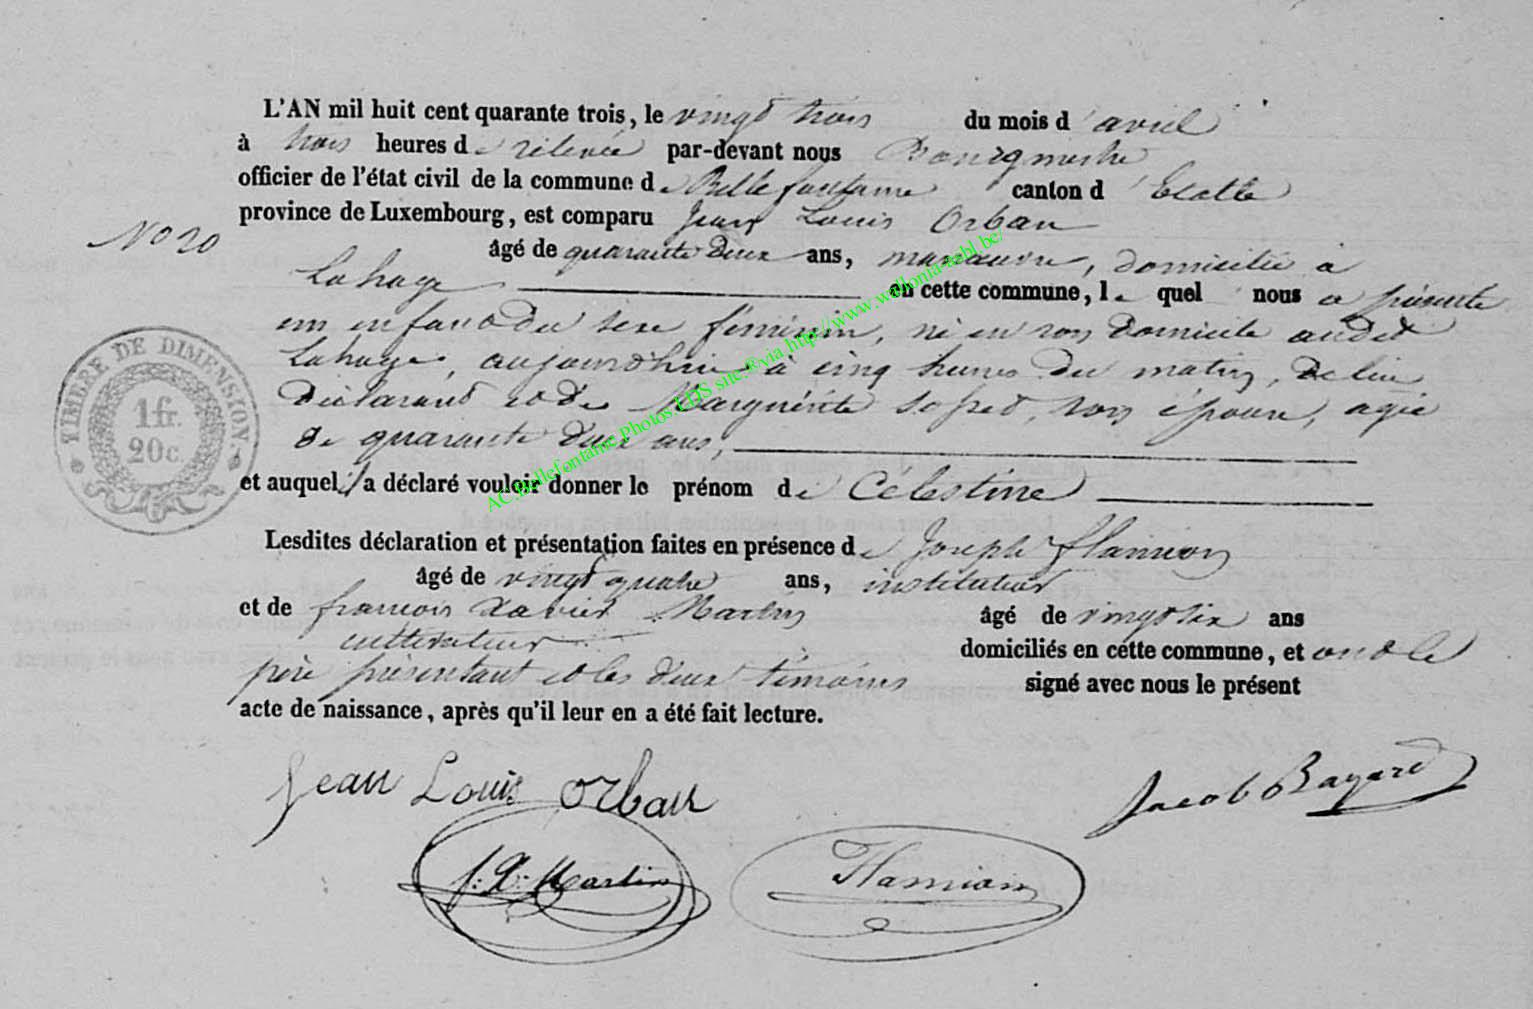 L'AN mil huit cent quarante trois, le vingt trois du mois d'avril
à trois heures de relevée par-devant nous Bourgmestre
officier de l'état civil de la commune de Bellefontaine canton d'Etalle
province de Luxembourg, est comparu Jean Louis Orban
No 20
âgé de quarante deux ans, manœuvre, domicilié à
Lahage en cette commune, lequel nous a présenté
un enfant du sexe féminin, né en son domicile audit
Lahage, aujourd'hui à cinq heures du matin, de lui
déclarant et de Marguérite son épouse, agée
de quarante deux ans,
et auquel il a déclaré vouloir donner le prénom de Celestine
Lesdites déclaration et présentation faites en présence de Joseph Flamion
âgé de vingt quatre ans, instituteur
et de francois Xavier Martin âgé de vingt six ans
cultivateur domiciliés en cette commune, et ont le
père présentant et les deux témoins signé avec nous le présent
acte de naissance, après qu'il leur en a été fait lecture.
Jean Louis Orban
Jacob Bayard
f: X: Martin
Flamion
TIMBRE DE DIMENSION.
1 fr.
20 c.
AC.Bellefontaine.Photos.LDS site.®via.http://www.wallonia-asbl.be/